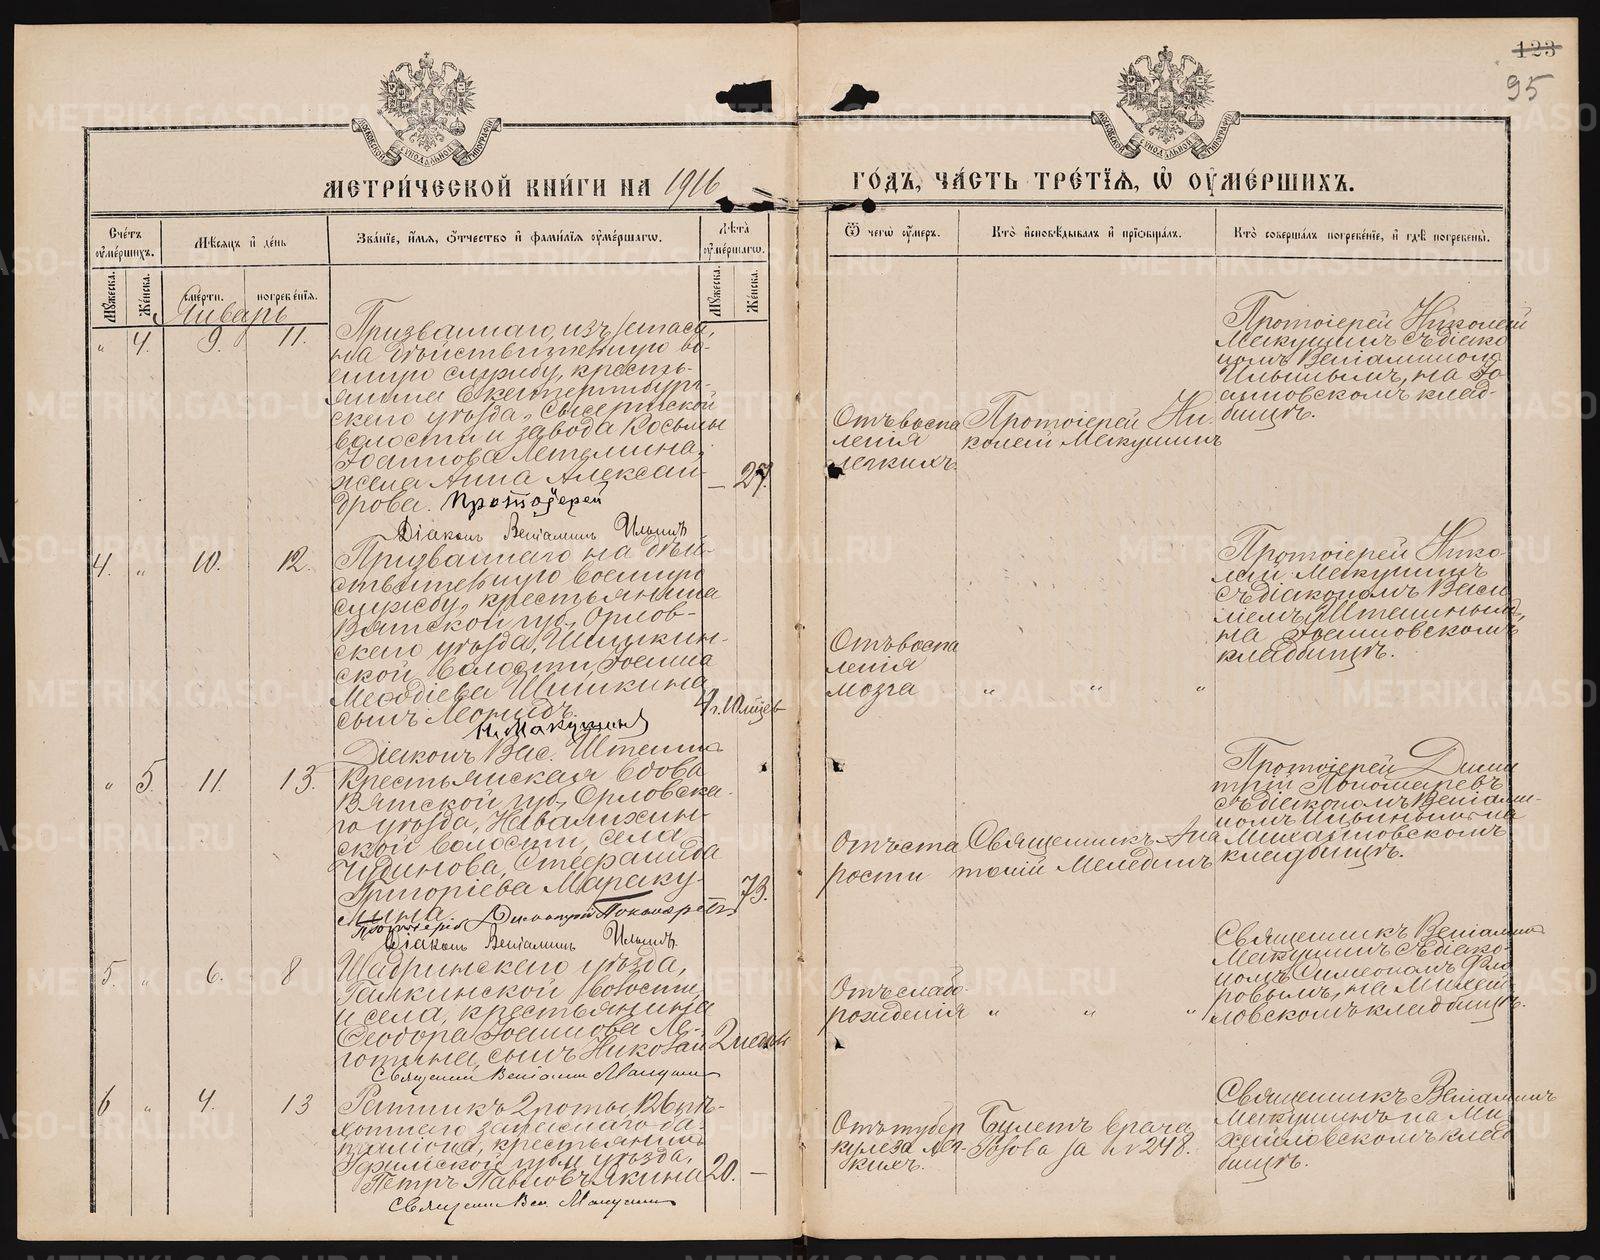 123
95
МЕТРИ́ЧЕСКОЙ КНИ́ГИ НА 1916
ГО́ДЪ, ЧА́СТЬ ТРЕ́ТЇѦ, Ѡ҆ ОУ҆МЕ́РШИХЪ.
Сче́тъ оу҆ме́ршихъ.
Мѣ́сѧцъ и҆ де́нь
Зва́нїе, и҆́мѧ, ѻ҆́тчество и҆ фами́лїѧ оу҆ме́ршагѡ.
Лѣ́та оу҆ме́ршагѡ.
Ѿ чегѡ̀ оу҆́меръ.
Кто̀ и҆сповѣ́дывалъ и҆ прїѡбща́лъ.
Кто̀ соверша́лъ погребе́нїе, и҆ гдѣ̀ погребены̀.
Мꙋ́жеска.
Же́нска.
сме́рти.
погребе́нїѧ.
Мꙋ́жеска.
Же́нска.
Январь
„ 4. 9. 11.
Призваннаго, изъ запаса,
на дѣйствительную во-
енную службу, кресть-
янина Екатеринбург-
скаго уѣзда, Сысертской
волости и завода Косьмы
Іоаннова Летемина,
жена Анна Алексан-
дрова. Протоіерей
Діаконъ Веніаминъ Ильинъ
— 27.
Отъ воспа
ленія
легкихъ.
Протоіерей Ни-
колай Макушинъ
Протоіерей Николай
Макушинъ съ діако
номъ Веніаминомъ
Ильинымъ, на Іо-
анновскомъ клад-
бищѣ.
4. „ 10. 12.
Призваннаго на дѣй-
ствительную военную
службу, крестьянина
Вятской губ., Орлов-
скаго уѣзда, Шишкин-
ской волости, Іоанна
Меѳодіева Шишкина
сынъ Леонидъ.
Н. Макушинъ
Діаконъ Вас. Штеннъ
4 г. 10 мѣсев
Отъ воспа
ленія
мозга
„ „ „
Протоіерей Нико-
лай Макушинъ
съ діакономъ Васи
ліемъ
на Іоанновскомъ
кладбищѣ.
„ 5. 11. 13.
Крестьянская вдова
Вятской губ., Орловска-
го уѣзда,
ской волости, села
Чудинова, Стефанида
Григоріева Мараку-
лина.
Протоіерей Димитрій Пономаревъ
Діаконъ Веніаминъ Ильинъ.
— 73.
Отъ ста
рости
Священникъ Ана
толій Мелединъ
Протоіерей Дими
трій Пономаревъ
съ діакономъ Веніами-
номъ Ильинымъ на
Михайловскомъ
кладбищѣ.
5. „ 6. 8
Шадринскаго уѣзда,
Галкинской волости,
и села, крестьянина
Ѳеодора Іоаннова Ла-
готина, сынъ Николай
Священникъ Веніаминъ Макушинъ
Отъ слаб.
рожденія
„ „ „
Священникъ Веніаминъ
Макушинъ съ діако-
номъ Симеономъ Фло
ровымъ, на Михай
ловскомъ кладбищѣ.
6 „ 4. 13
Ратникъ 2 роты, 126 пѣ-
хотнаго запаснаго ба-
таліона, крестьянинъ
Уфимской губ. и уѣзда,
Петръ Павловъ Якина
Священн. Вен. Макушинъ
20. —
Отъ тубер
кулеза лег-
кихъ.
Билетъ врача
за № 248.
Священникъ Веніаминъ
Макушинъ на Ми-
хайловскомъ клад
бищѣ.